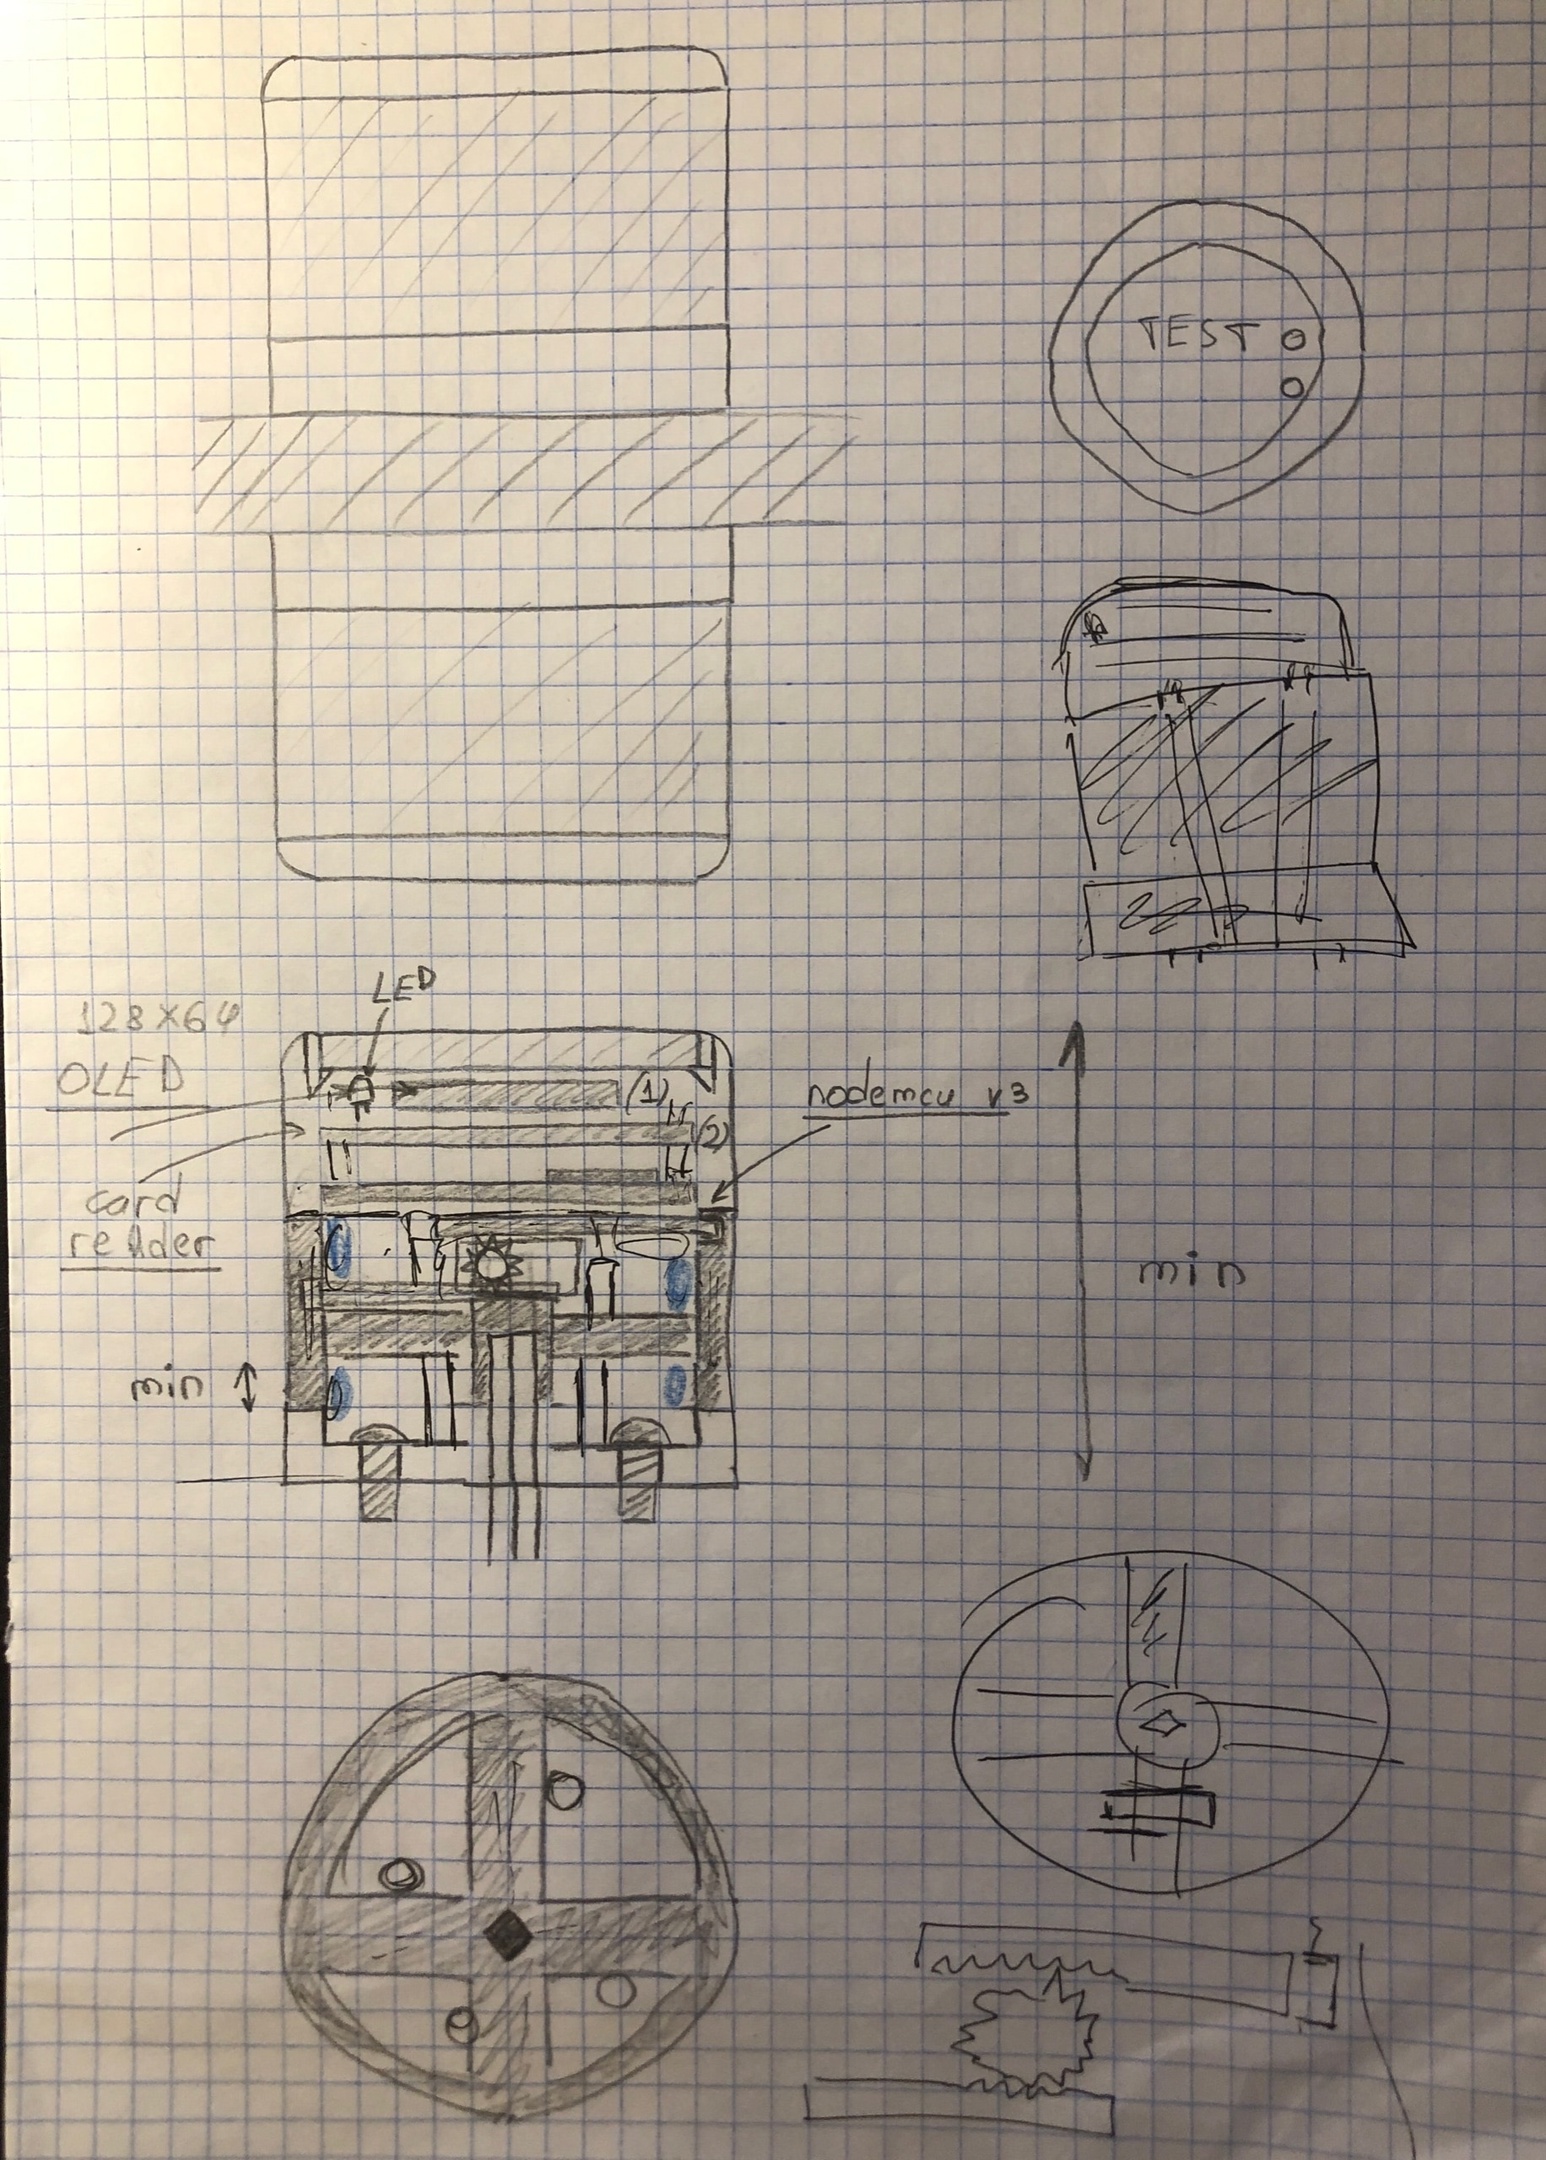 TEST
LED
128x64
OLED
(1)
(2)
nodemcu v3
card
reader
min
min